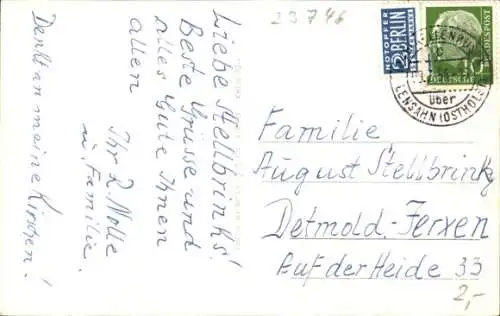 23746
Liebe Stellbrinks!
Beste Grüsse und
alles Gute Ihnen
allen
Ihr R. Nolle
u. Familie.
Denkt an meine Kirschen!
NOTOPFER
2 BERLIN
STEUERMARKE
DEUTSCHE BUNDESPOST
10
über
LENSAHN (OSTHOLST
Familie
August Stellbrink
Detmold-Jerxen
Auf der Heide 33
2,-